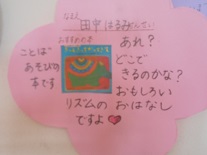 なまえ
田中はるみ
おすすめの本
ことば
あそびの
本です
あれ？
どこで
きるのかな？
おもしろい
リズムの おはなし
ですよ